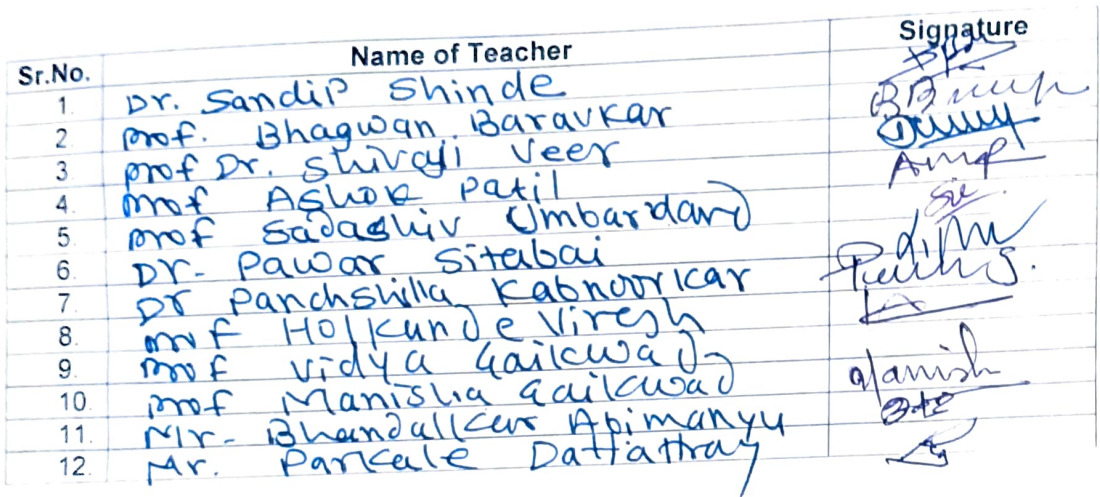 Sr.No. Name of Teacher Signature
1. Dr. Sandip Shinde
2. prof. Bhagwan Baravkar
3. prof Dr. Shivaji Veer
4. prof Ashok Patil
5. prof Sadashiv Umbardand
6. Dr- Pawar Sitabai
7. Dr Panchshilla Kabnoorkar
8. prof Holkunde Viresh
9. prof Vidya Gaikwad
10. prof Manisha Gaikwad Manish
11. Mr- Bhandalkar Abimanyu
12. Mr. Parkale Dattatray